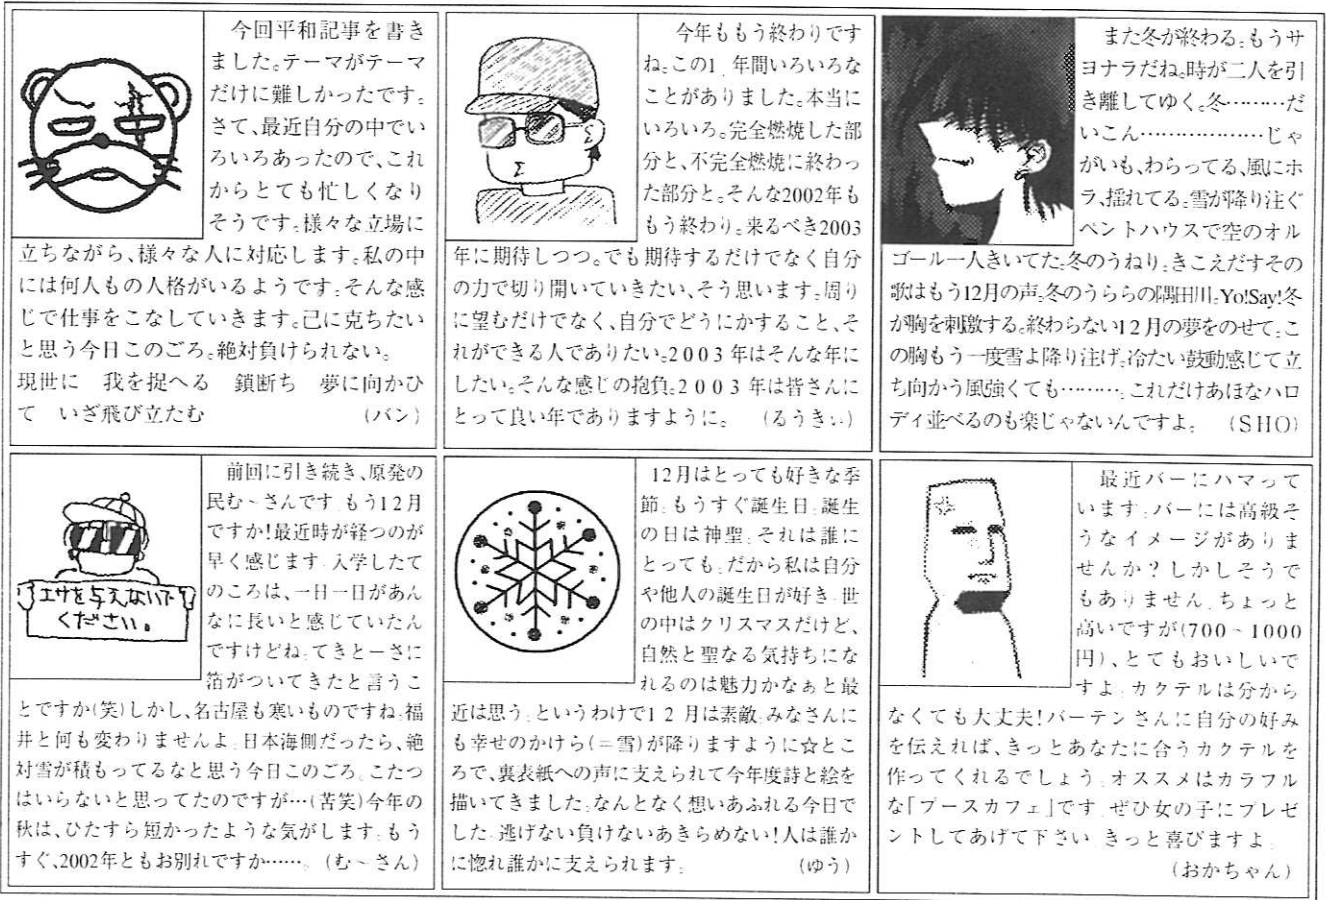 今回平和記事を書き
ました。テーマがテーマ
だけに難しかったです。
さて、最近自分の中でい
ろいろあったので、これ
からとても忙しくなり
そうです。様々な立場に
立ちながら、様々な人に対応します。私の中
には何人もの人格がいるようです。そんな感
じで仕事をこなしていきます。己に克ちたい
と思う今日このごろ。絶対負けられない。
現世に 我を捉へる 鎖断ち 夢に向かひ
て いざ飛び立たむ (バン)
今年ももう終わりです
ね。この1年間いろいろな
ことがありました。本当に
いろいろ。完全燃焼した部
分と、不完全燃焼に終わっ
た部分と。そんな2002年も
もう終わり。来るべき2003
年に期待しつつ。でも期待するだけでなく自分
の力で切り開いていきたい、そう思います。周り
に望むだけでなく、自分でどうにかすること、そ
れができる人でありたい。2003年はそんな年に
したい。そんな感じの抱負。2003年は皆さんに
とって良い年でありますように。 (るうきぃ)
また冬が終わる。もうサ
ヨナラだね。時が二人を引
き離してゆく。冬………だ
いこん………………じゃ
がいも、わらってる、風にホ
ラ、揺れてる。雪が降り注ぐ
ペントハウスで空のオル
ゴール一人きいてた。冬のうねり。きこえだすその
歌はもう12月の声。冬のうららの隅田川。Yo!Say!冬
が胸を刺激する。終わらない12月の夢をのせて。こ
の胸もう一度雪よ降り注げ。冷たい鼓動感じて立
ち向かう風強くても………。これだけあほなハロ
ディ並べるのも楽じゃないんですよ。 (SHO)
エサを与えないで
ください。
前回に引き続き、原発の
民む～さんです。もう12月
ですか!最近時が経つのが
早く感じます。入学したて
のころは、一日一日があん
なに長いと感じていたん
ですけどね。てきとーさに
箔がついてきたと言うこ
とですか(笑)しかし、名古屋も寒いものですね。福
井と何も変わりませんよ。日本海側だったら、絶
対雪が積もってるなと思う今日このごろ。こたつ
はいらないと思ってたのですが…(苦笑)今年の
秋は、ひたすら短かったような気がします。もう
すぐ、2002年ともお別れですか……。 (む～さん)
12月はとっても好きな季
節。もうすぐ誕生日。誕生
の日は神聖。それは誰に
とっても。だから私は自分
や他人の誕生日が好き。世
の中はクリスマスだけど、
自然と聖なる気持ちにな
れるのは魅力かなぁと最
近は思う。というわけで12月は素敵。みなさんに
も幸せのかけら(=雪)が降りますように☆とこ
ろで、裏表紙への声に支えられて今年度詩と絵を
描いてきました。なんとなく想いあふれる今日で
した。逃げない負けないあきらめない!人は誰か
に惚れ誰かに支えられます。 (ゆう)
最近バーにハマって
います。バーには高級そ
うなイメージがありま
せんか?しかしそうで
もありません。ちょっと
高いですが(700～1000
円)、とてもおいしいで
すよ。カクテルは分から
なくても大丈夫!バーテンさんに自分の好み
を伝えれば、きっとあなたに合うカクテルを
作ってくれるでしょう。オススメはカラフル
な「プースカフェ」です。ぜひ女の子にプレゼ
ントしてあげて下さい。きっと喜びますよ。
(おかちゃん)